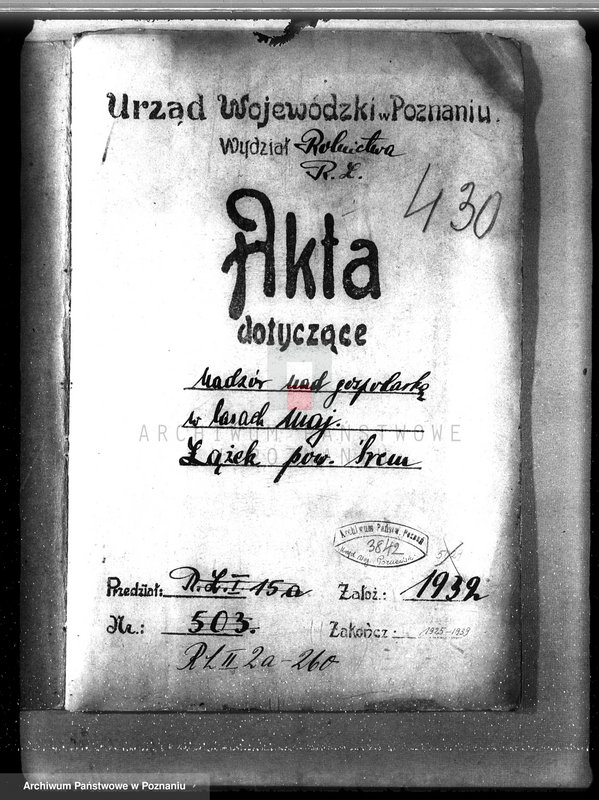 Urząd Wojewódzki w Poznaniu.
Wydział Rolnictwa
R. L.
430
Akta
dotyczące
nadzór nad gospodarką
w lasach maj.
pow. Śrem
ARCHIWUM PAŃSTWOWE
POZNANIU
Archiwum Państw. Poznań
3842
Przedział: R. L. I 15a Założ.: 1932
Nr.: 503. Zakończ.: 1925-1939
RL II 2a-260
Archiwum Państwowe w Poznaniu